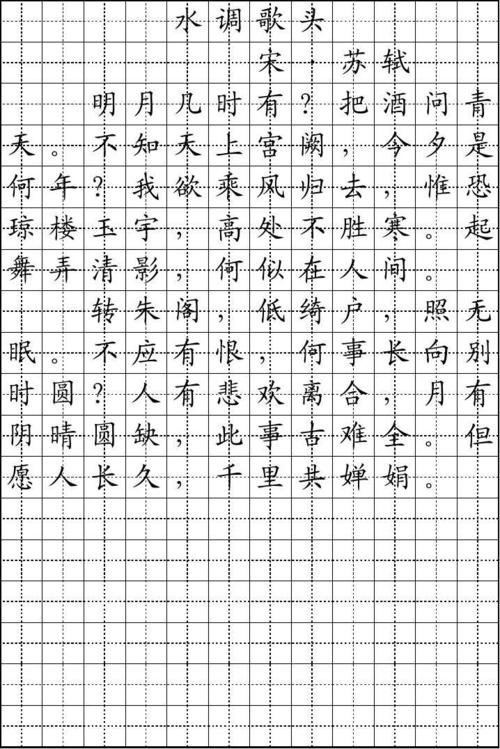 水调歌头
宋·苏轼
明月几时有？把酒问青
天。不知天上宫阙，今夕是
何年？我欲乘风归去，惟恐
琼楼玉宇，高处不胜寒。起
舞弄清影，何似在人间。
转朱阁，低绮户，照无
眠。不应有恨，何事长向别
时圆？人有悲欢离合，月有
阴晴圆缺，此事古难全。但
愿人长久，千里共婵娟。